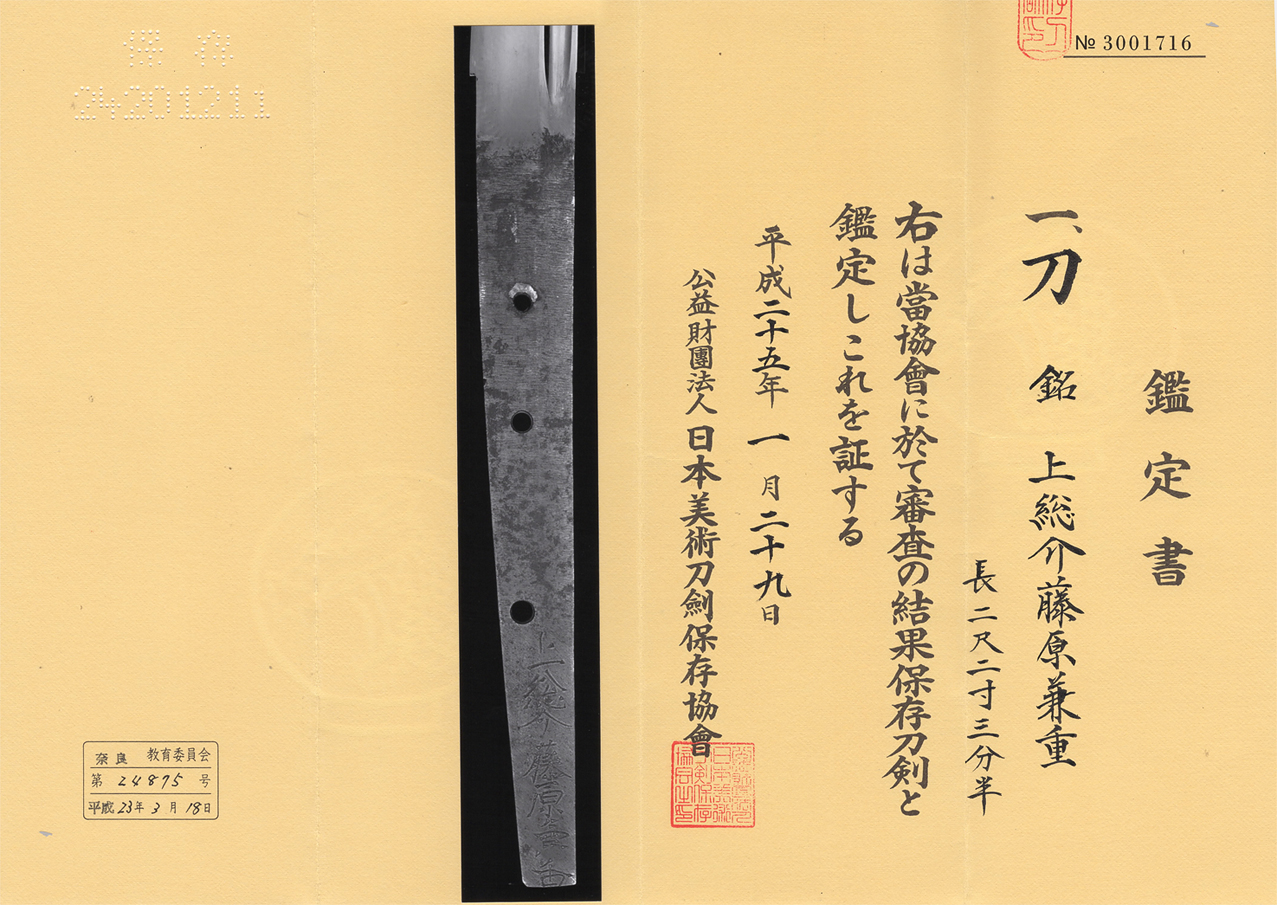 № 3001716
鑑定書
一、刀 銘 上総介藤原兼重
長二尺二寸三分半
右は當協會に於て審査の結果保存刀剣と
鑑定しこれを証する
平成二十五年一月二十九日
公益財團法人日本美術刀劍保存協會
上総介藤原兼重
保存
24201211
奈良 教育委員会
第 24875 号
平成23年3月18日